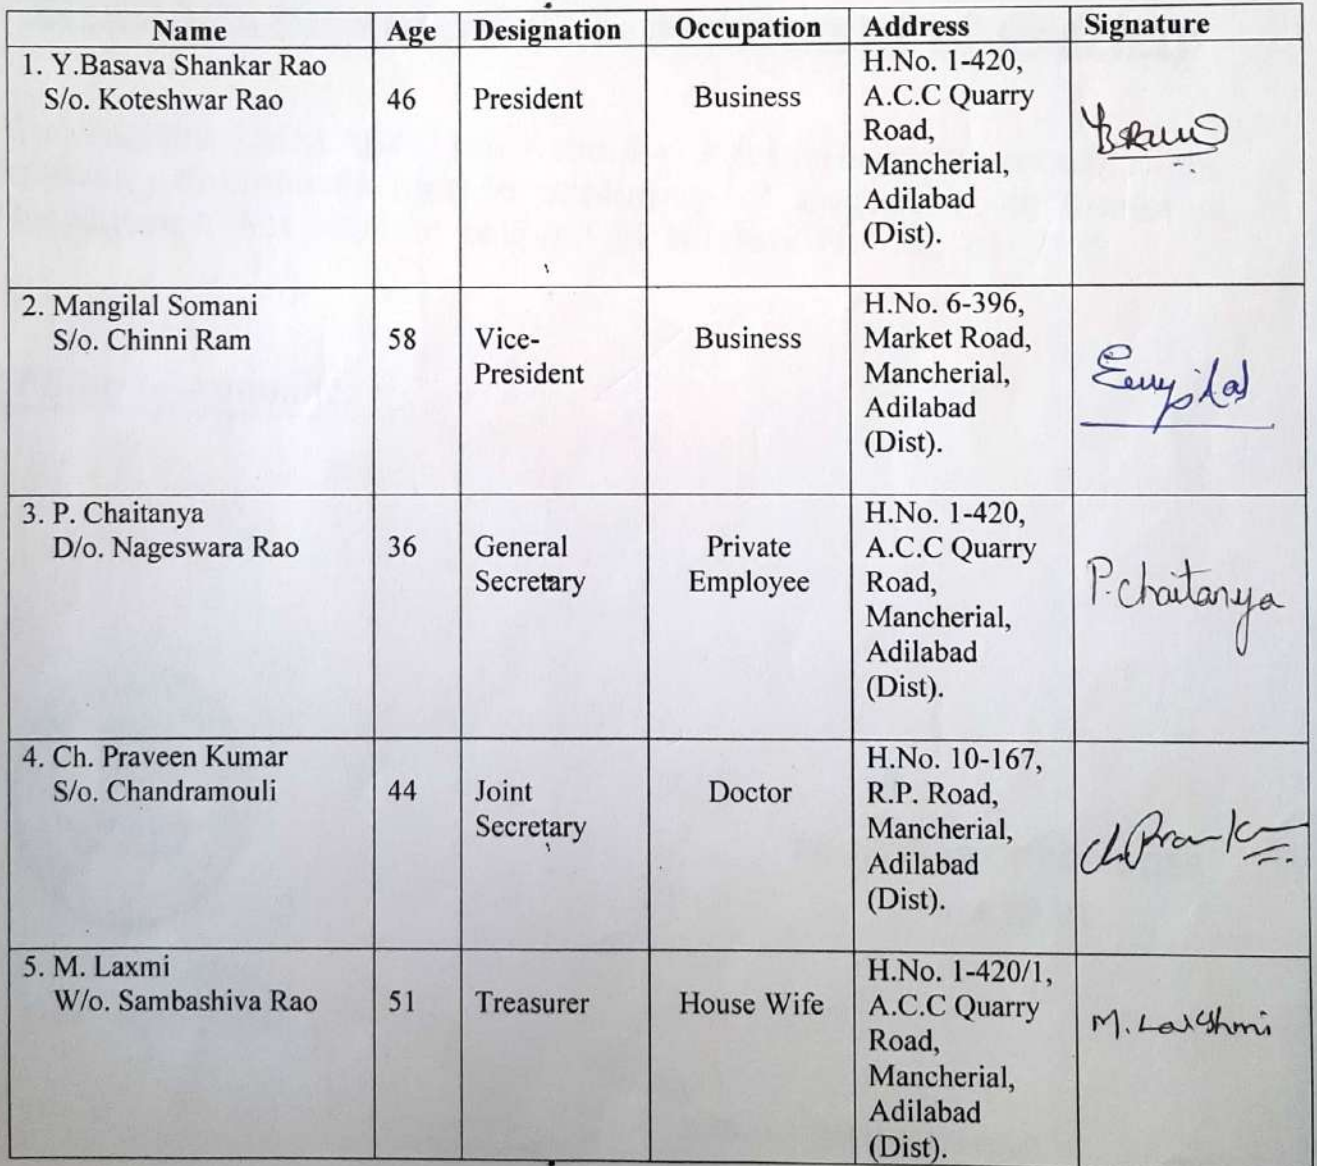 Name Age Designation Occupation Address Signature
1. Y.Basava Shankar Rao
S/o. Koteshwar Rao 46 President Business
H.No. 1-420,
A.C.C Quarry
Road,
Mancherial,
Adilabad
(Dist).
2. Mangilal Somani
S/o. Chinni Ram 58 Vice-
President
Business
H.No. 6-396,
Market Road,
Mancherial,
Adilabad
(Dist).
3. P. Chaitanya
D/o. Nageswara Rao 36 General
Secretary
Private
Employee
H.No. 1-420,
A.C.C Quarry
Road,
Mancherial,
Adilabad
(Dist).
P. Chaitanya
4. Ch. Praveen Kumar
S/o. Chandramouli 44 Joint
Secretary
Doctor
H.No. 10-167,
R.P. Road,
Mancherial,
Adilabad
(Dist).
5. M. Laxmi
W/o. Sambashiva Rao 51 Treasurer House Wife
H.No. 1-420/1,
A.C.C Quarry
Road,
Mancherial,
Adilabad
(Dist).
M. Lakshmi